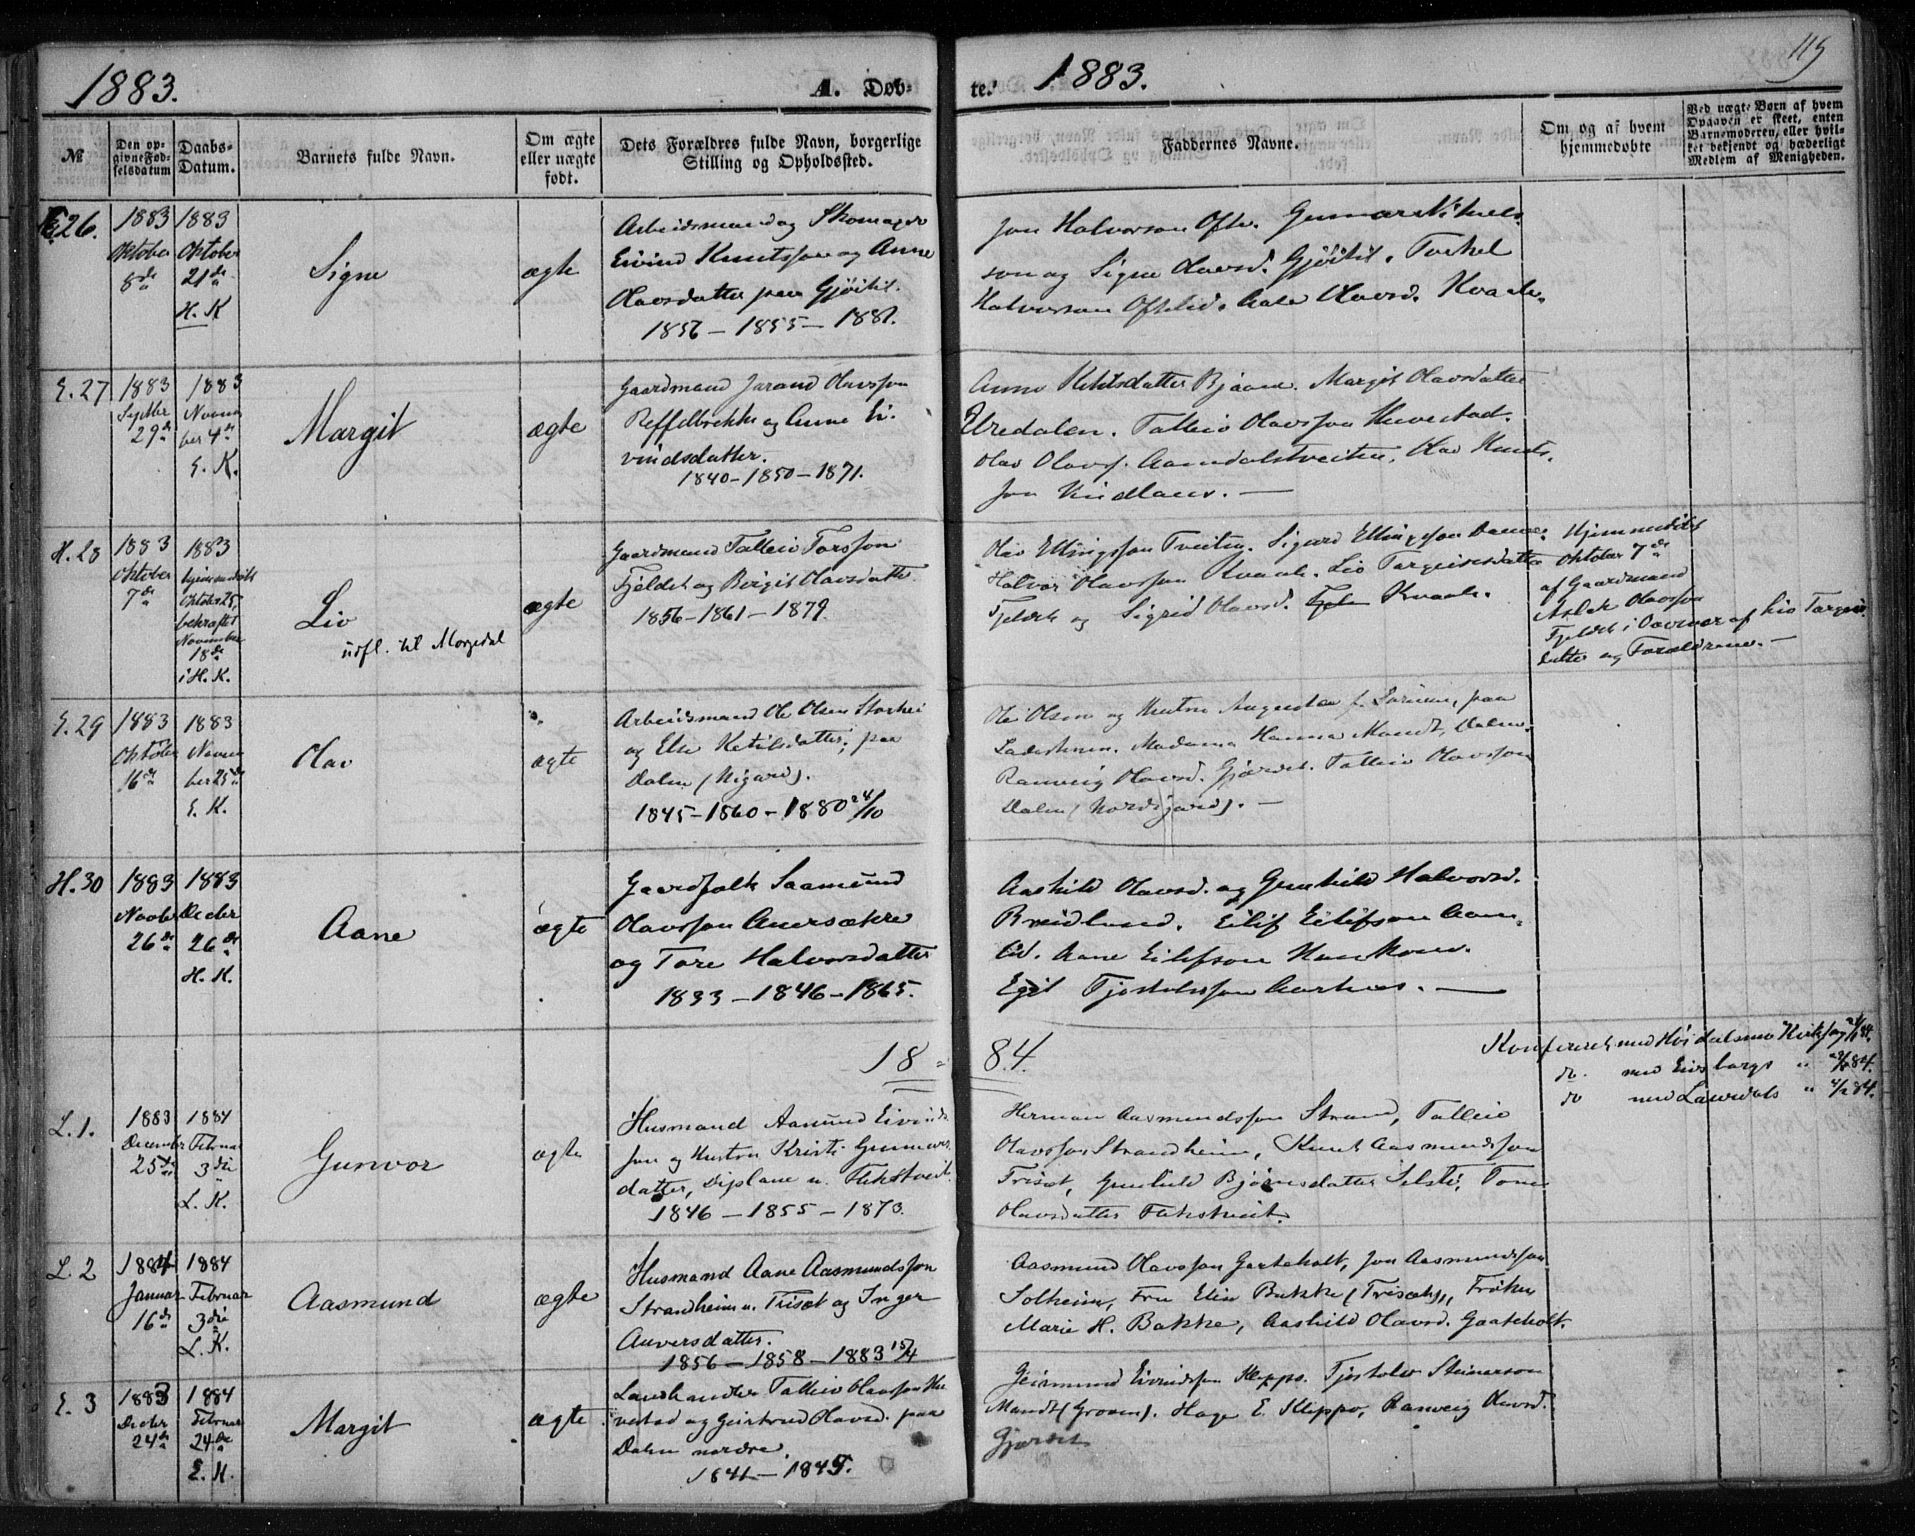 1883.
A. Døb-
te.
1883.
119
№
Den opgivne Fødselsdatum
Daabs-Datum.
Barnets fulde Navn.
Om ægte eller uægte født.
Dets Forældres fulde Navn, borgerlige Stilling og Opholdssted.
Faddernes Navne.
Om og af hvem hjemmedøbte
Ved uægte Børn af hvem Opgaven er skeet, enten Barnemoderen, eller hvilket bekjendt og hæderligt Medlem af Menigheden.
E. 26.
1883 Oktober 8de
1883 Oktober 21de H. K
Signe
ægte
Arbeidsmand og Skomager
Eivind Knutsson og Anne
Olavsdatter paa Gjøitil.
1856 – 1855 – 1881.
Jon Halvorson Ofte. Gunnar
son og Signe Olavsd. Gjøitil. Torkel
Halvorson Oftelid. Aase Olavsd. Kvaale.
E. 27
1883 Septbr 29de
1883 November 4de E. K.
Margit
ægte
Gaardmand Jorand Olavsson
Reffelbrekke og Anne Ei-
vindsdatter.
1840 – 1850 – 1871.
Anne Ketilsdatter Bjaaen. Margit Olavsdatter
Uredalen. Talleiv Olavsson Huvestad.
Olav Olavs. Aamdalstveiten, Olav Knuts-
son
H. 28
1883 Oktober 7de
1883 hjemmedøbt Oktober 25, bekræftet November 18de i H. K.
Liv
udfl. til Morgedal
ægte
Gaardmand Talleiv Torsson
Fjeldet og Birgit Olavsdatter
1856 – 1861 – 1879.
Olav Ellingsson Tveiten. Sigurd Ellingsson
Halvor Olavsson Kvaale. Liv Targeirsdatter
Fjeldet og Sigrid Olavsd. Kvaale.
Hjemmedøbt
Oktober 7de
af Gaardmand
Aslak Olavsson
Fjeldet i Nærvær af Liv Targeirs-
datter og Forældrene. –
E. 29
1883 Oktober 16de
1883 November 25de E. K.
Olav
ægte
Arbeidsmand Ole Olsen
og Else Ketilsdatter, paa
Dalen (Nigard).
1845 – 1860 – 1880 24/10
Ole Olson og Hustru Augusta f. paa
Ladestenen. Madama Hanna Mandt, Dalen.
Ranveig Olavsd. Gjærdet. Talleiv Olavsson
Dalen (Nordigard). –
H. 30
1883 Novbr 26de
1883 Decbr 26de H. K.
Aane
ægte
Gaardfolk Saamund
Olavsson
og Tore Halvorsdatter
1833 – 1846 – 1865.
Aashild Olavsd. og Gunhild Halvorsd.
Breidlund. Eilif Eilifson Aam-
lid. Aane Eilefson
Egil Tjostolvsson Aarhus. –
18 84.
Konfereret med Høidalsmo Kirkebog
do. med Eidsborgs "
do med Laurdals "
L. 1.
1883 December 25de
1884 Februar 3die L. K.
Gunvor
ægte
Husmand Aanund Eivinds-
son og Hustru Kristi Gunnars-
datter, u. Fikstveit.
1846 – 1855 – 1873.
Herman Aasmundsson Strand, Talleiv
Olavsson Strandheim, Knut Aasmundsson
Trisæt, Gunhild Bjørnsdatter Selsti, Tone
Olavsdatter Fikstveit.
L. 2
1884 Januar 16de
1884 Februar 3die L. K.
Aasmund
ægte
Husmand Aane Aasmundsson
Strandheim u. Trisæt og Inger
Anversdatter.
1856 – 1858 – 1883 15/4
Aasmund Olavsson Garteholt, Jon Aasmundsson
Solheim, Fru Elin Bakke (Trisæt), Frøken
Marie H. Bakke, Aashild Olavsd. Gaateholt.
E. 3
1883 Decbr 24de
1884 Februar 24de E. K.
Margit
ægte
Landhandler Talleiv Olavsson Hu-
vestad og Geirtrud Olavsd. paa
Dalen nordre.
1841 – 1845.
Geirmund Eivindsson Klippo. Tjostolv Steinarson
Mandt (Groven). Hage E. Klippo, Ranveig Olavsd.
Gjærdet